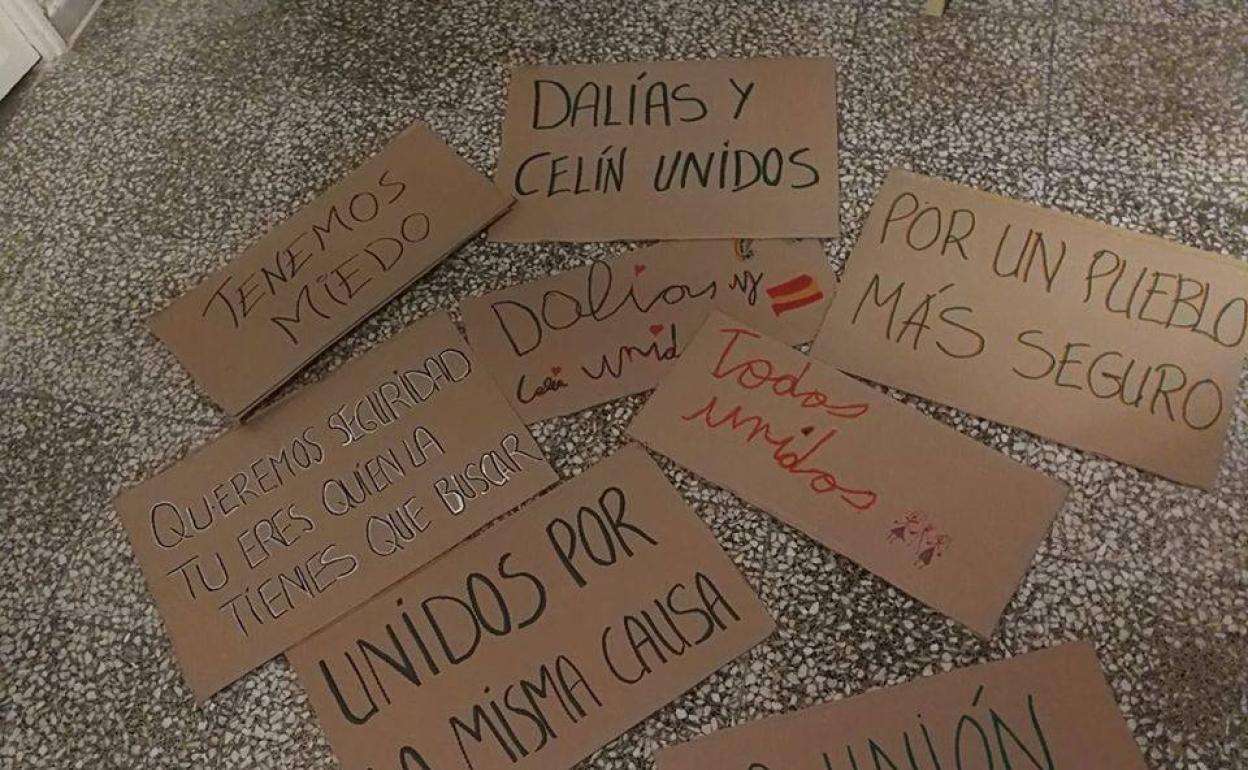 DALÍAS Y
CELÍN UNIDOS
TENEMOS
MIEDO
POR UN PUEBLO
MÁS SEGURO
Dalías y
unid
Todos
unidos
QUEREMOS SEGURIDAD
TU ERES QUIEN LA
TIENES QUE BUSCAR
UNIDOS POR
LA MISMA CAUSA
UNIÓN